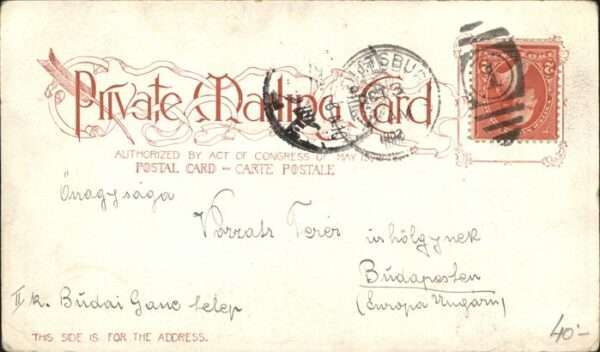 Private Mailing Card
AUTHORIZED BY ACT OF CONGRESS OF MAY
POSTAL CARD – CARTE POSTALE
Önagysága
Teréz úrhölgynek
Budapesten
(Europa Ungarn)
II k. Budai Ganz telep
THIS SIDE IS FOR THE ADDRESS.
40.-